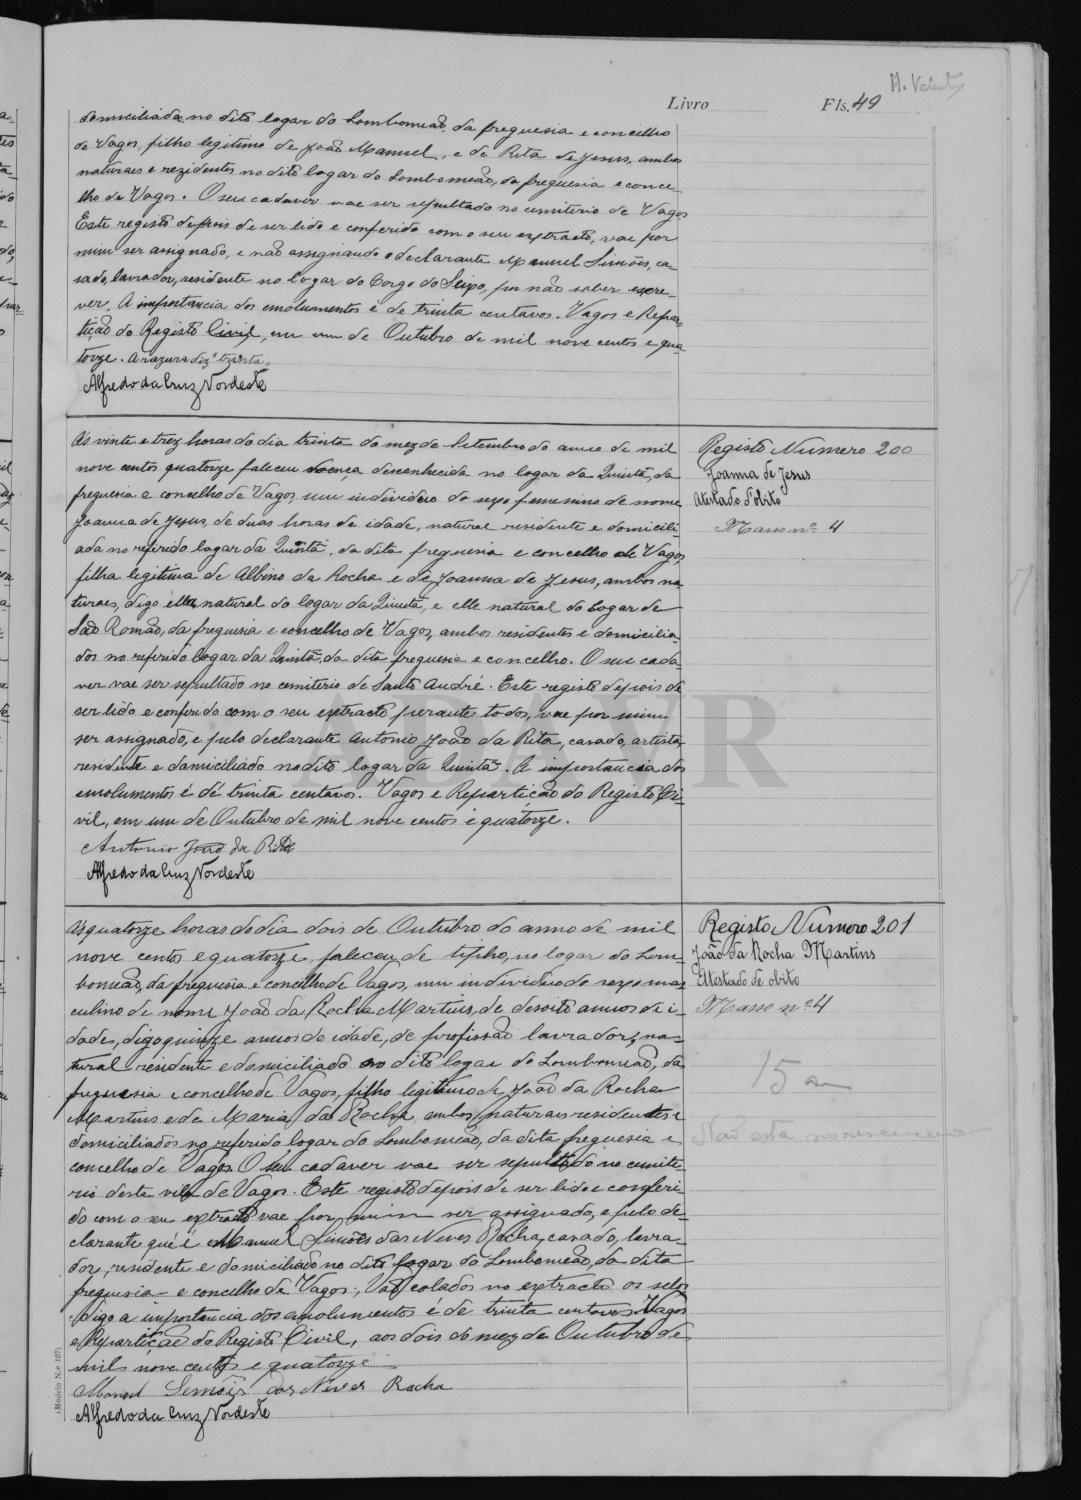 M. Valente
Livro Fls. 49
domiciliada, no dito logar do Lombomeão, da freguesia e concelho
de Vagos, filho legitimo de João Manuel, e de Rita de Jesus, ambos
naturaes e rezidentes no dito logar do Lombomeão, da freguesia e conce-
lho de Vagos. O seu cadaver vae ser sepultado no cemiterio de Vagos
Este registo depois de ser lido e conferido com o seu extracto, vae por
mim ser assignado, e não assignando o declarante Manuel Simões, ca-
sado, lavrador, residente no logar do Corgo do Seixo, por não saber escre-
ver. A importancia dos emolumentos é de trinta centavos. Vagos e Repar-
tição do Registo Civil, em um de Outubro de mil nove centos e qua
torze. A razura diz "trinta".
Alfredo da Cruz Nordeste
Registo Numero 200
Joanna de Jesus
Atestado d'obito
Masso nº 4
Ás vinte e trez horas do dia trinta do mez de Setembro do anno de mil
nove centos quatorze faleceu doença desconhecida no logar da Quintã, da
freguesia e concelho de Vagos um individuo do sexo femenino de nome
Joanna de Jesus, de duas horas de idade, natural residente e domicili-
ada no referido logar da Quintã, da dita freguesia e concelho de Vagos,
filha legitima de Albino da Rocha e de Joanna de Jesus, ambos na
turaes, digo ella natural do logar da Quintã, e elle natural do logar de
São Romão, da freguesia e concelho de Vagos, ambos residentes e domicilia-
dos no referido logar da Quintã, da dita freguesia e concelho. O seu cada
ver vae ser sepultado no cemiterio de Santo André. Este registo depois de
ser lido e conferido com o seu extracto perante todos, vae por mim
ser assignado, e pelo declarante Antonio João da Rita, casado, artista,
residente e domiciliado no dito logar da Quintã. A importancia dos
emolumentos é de trinta centavos. Vagos e Repartição do Registo Ci-
vil, em um de Outubro de mil nove centos e quatorze.
Antonio João da Rita
Alfredo da Cruz Nordeste
Registo Numero 201
João da Rocha Martins
Atestado de obito
Masso nº 4
15 a
Não esta
Ás quatorze horas do dia dois de Outubro do anno de mil
nove centos e quatorze, faleceu de tipho, no logar do Lom
bomeão, da freguesia e concelho de Vagos, um individuo do sexo mas
culino de nome João da Rocha Martins, de desoito annos de i-
dade, digo quinze annos de idade, de profissão lavrador, na-
tural residente e domiciliado no dito logar do Lombomeão, da
freguesia e concelho de Vagos, filho legitimo de João da Rocha
Martins e de Maria da Rocha, ambos naturaes residentes e
domiciliados no referido logar do Lombomeão, da dita freguesia e
concelho de Vagos. O seu cadaver vae ser sepultado no cemite-
rio desta vila de Vagos. Este registo depois de ser lido e conferi-
do com o seu extracto vae por mim ser assignado, e pelo de-
clarante que é Manuel Simões das Neves Rocha, casado, lavra-
dor, residente e domiciliado no dito logar do Lombomeão, da dita
freguesia e concelho de Vagos; Vão colados no extracto os selos
digo a importancia dos emolumentos é de trinta centavos. Vagos
e Repartição do Registo Civil, aos dois do mez de Outubro de
mil nove centos e quatorze
Manoel Semois das Neves Rocha
Alfredo da Cruz Nordeste
(Modelo N.º 107)